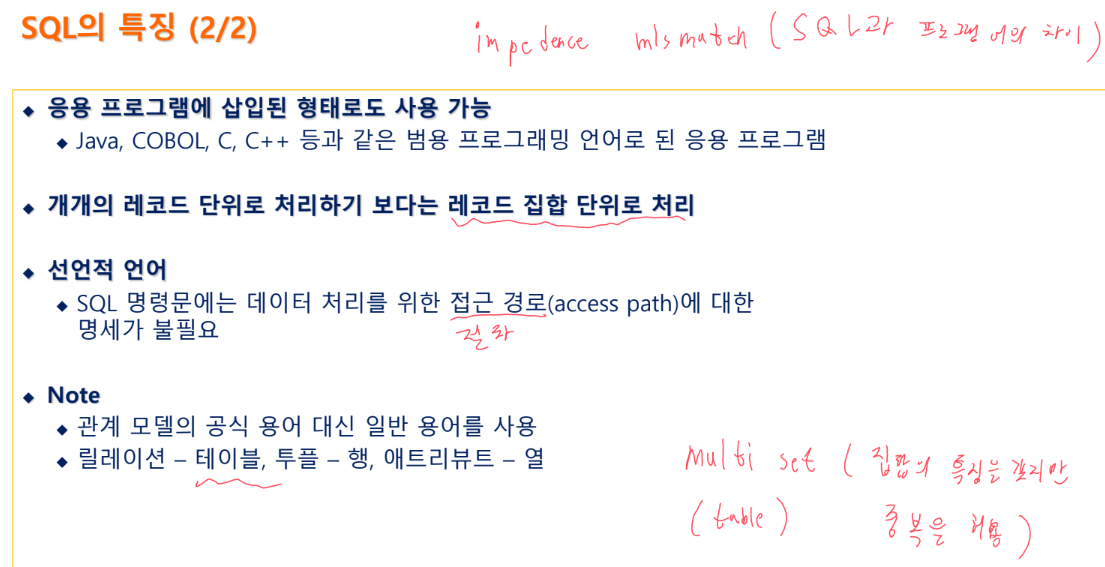 SQL의 특징 (2/2)
impedence mismatch (SQL과 프로그램 어의 차이)
◆ 응용 프로그램에 삽입된 형태로도 사용 가능
◆ Java, COBOL, C, C++ 등과 같은 범용 프로그래밍 언어로 된 응용 프로그램
◆ 개개의 레코드 단위로 처리하기 보다는 레코드 집합 단위로 처리
◆ 선언적 언어
◆ SQL 명령문에는 데이터 처리를 위한 접근 경로(access path)에 대한
명세가 불필요
절차
◆ Note
◆ 관계 모델의 공식 용어 대신 일반 용어를 사용
◆ 릴레이션 – 테이블, 투플 – 행, 애트리뷰트 – 열
multi set (집합의 특징은 갖지만
(table) 중복을 허용)